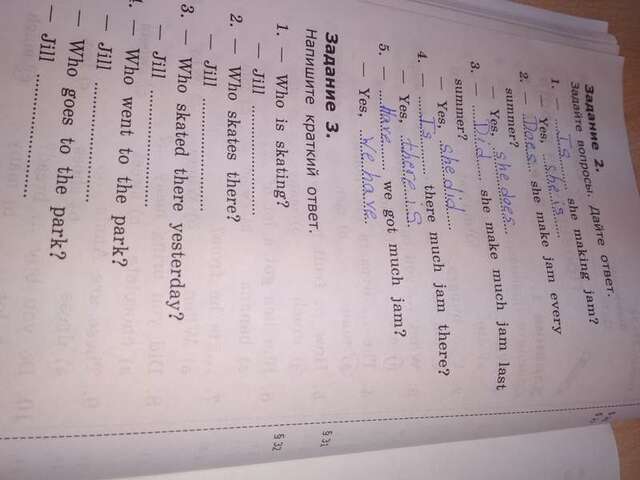 Задание 2.
Задайте вопросы. Дайте ответ.
1. — ....Is.... she making jam?
— Yes, ...she is......
2. — ..Does.. she make jam every
summer?
— Yes, ..she does...
3. — ..Did.... she make much jam last
summer?
— Yes, ..she did....
4. — ....Is.... there much jam there?
— Yes, ..there is...
5. — ..Have.... we got much jam?
— Yes, ..We have..
Задание 3.
Напишите краткий ответ.
1. — Who is skating?
— Jill ........................
2. — Who skates there?
— Jill ........................
3. — Who skated there yesterday?
— Jill ........................
— Who went to the park?
— Jill ........................
— Who goes to the park?
— Jill ........................
§ 31
§ 32